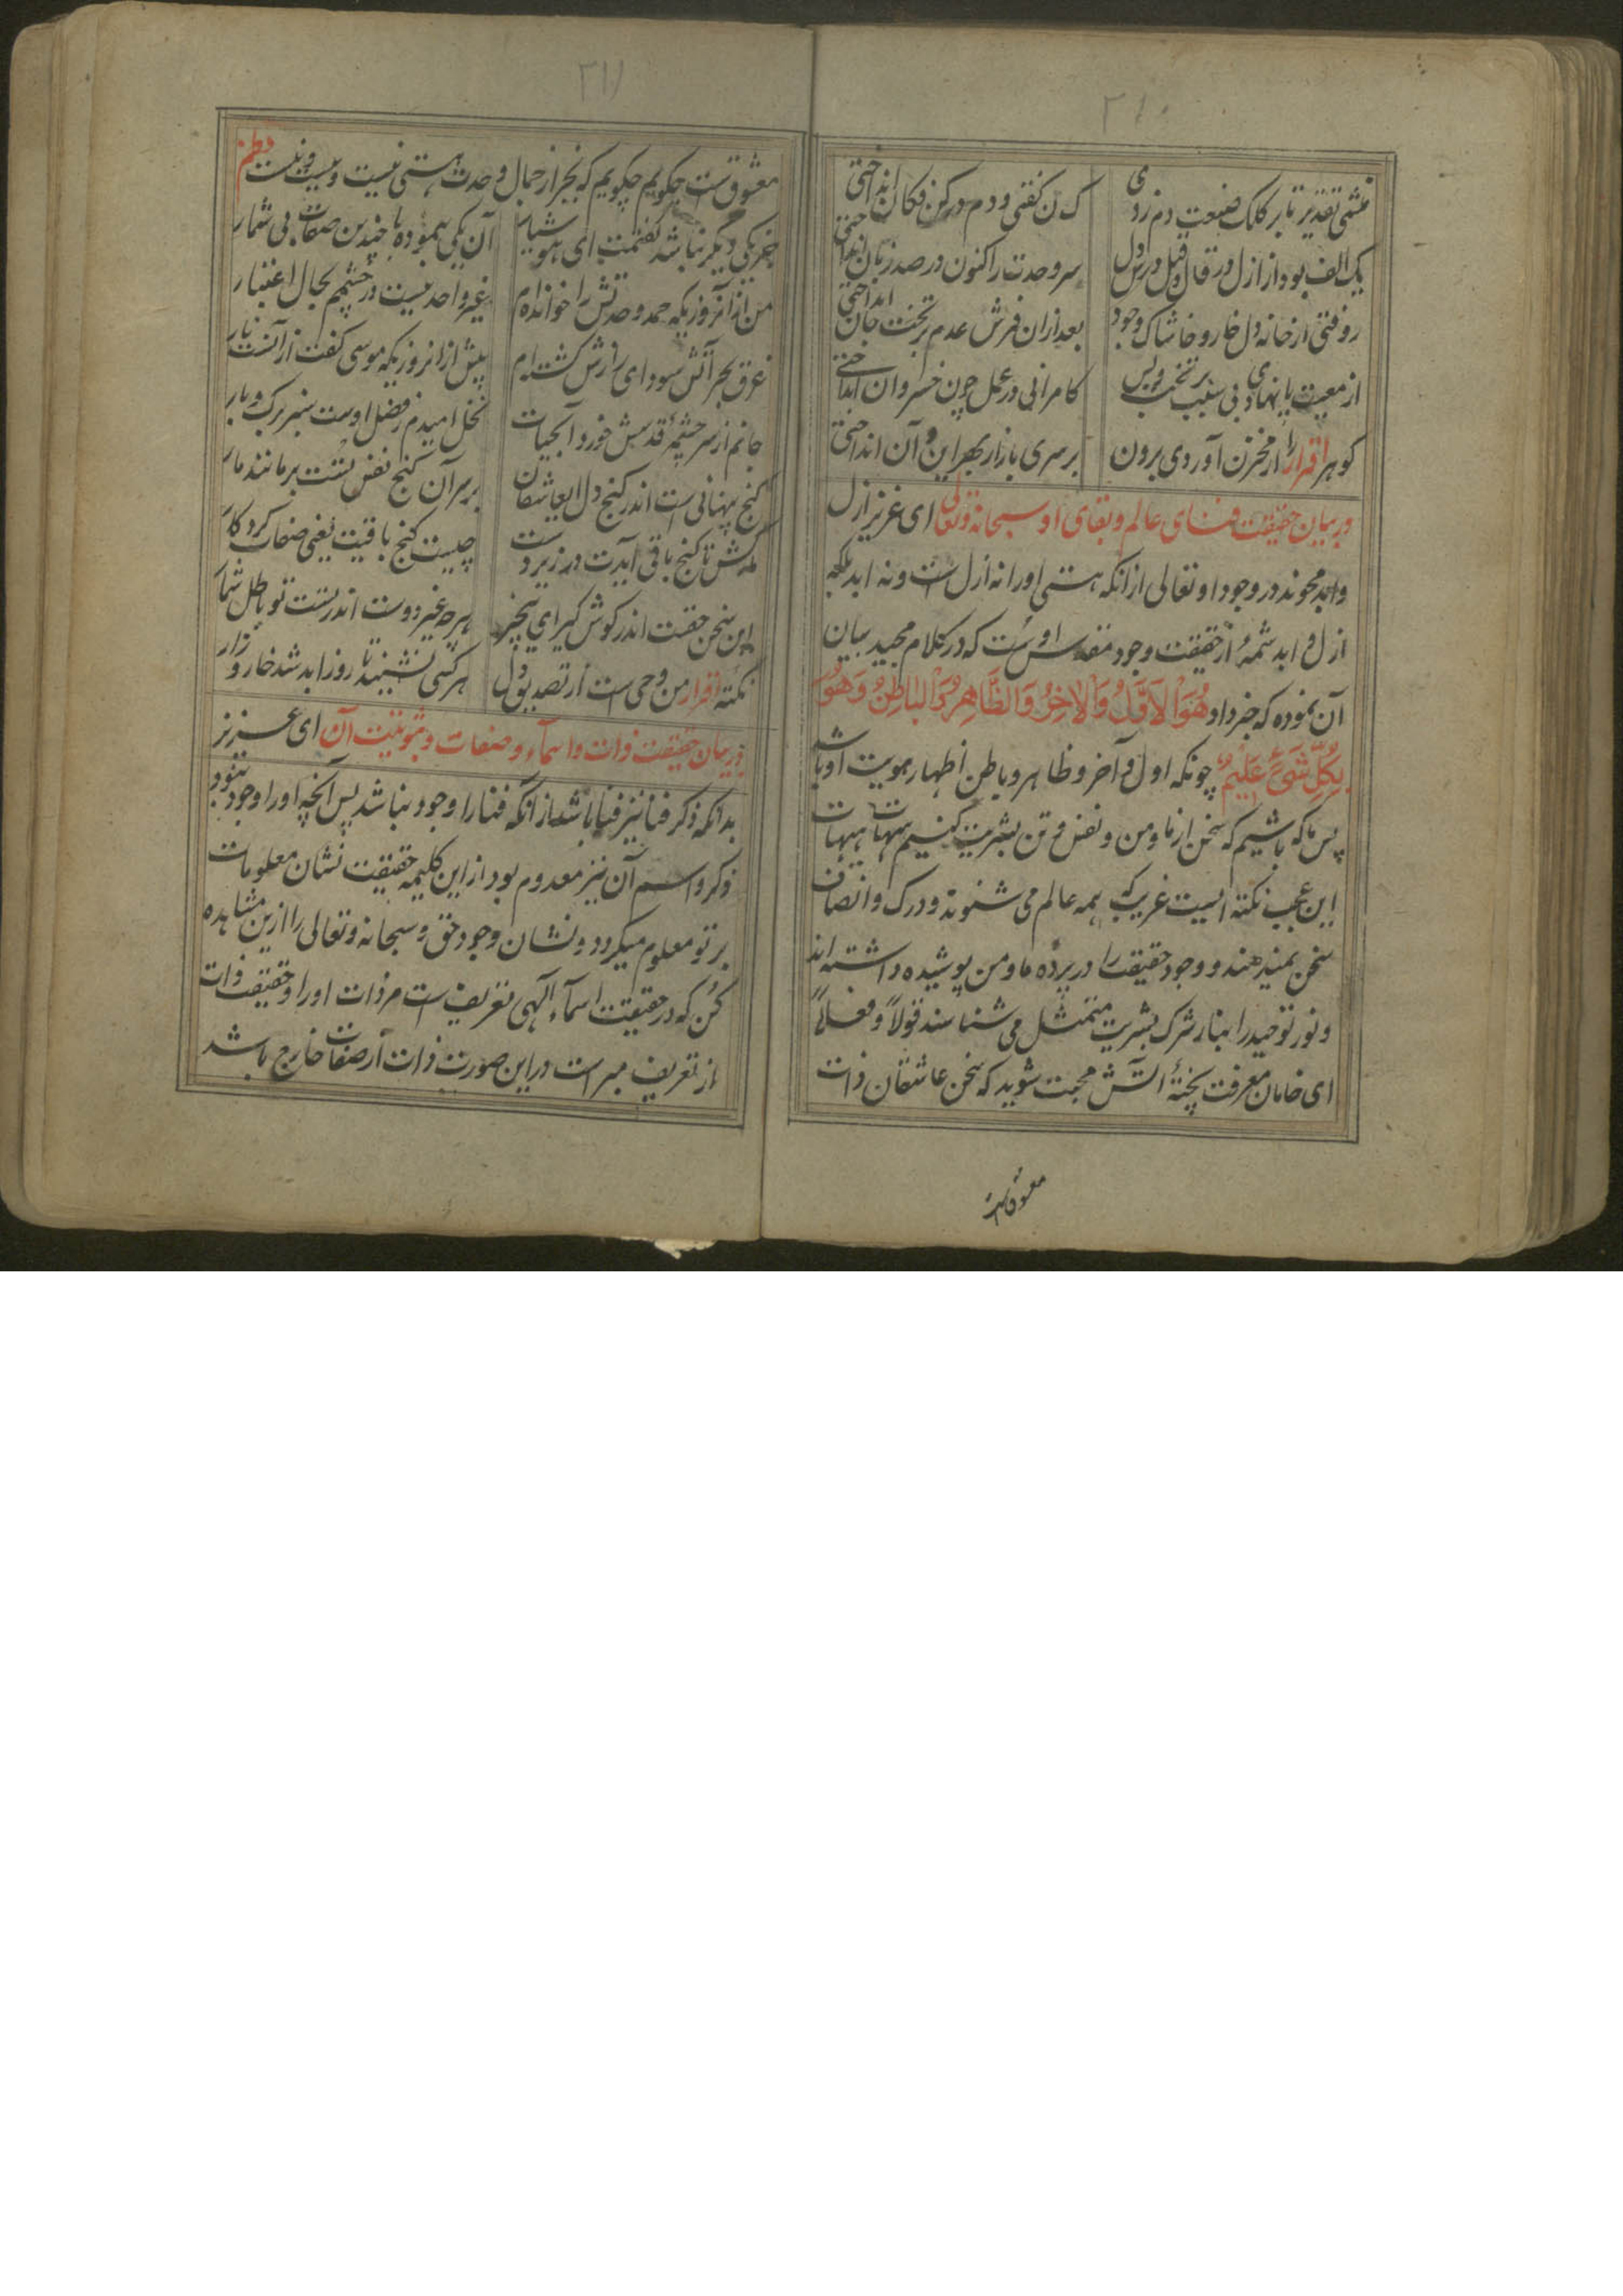 ۲۱۰
منشی تقدیر تا بر کلک صنعت دم زدی
ک ن گفتی و دم در کن فکان انداختی
یک الف بود از ازل در قال و قیل درس دل
سر وحدت را کنون در صد زبان انداختی
روفتی از خانه دل خار و خاشاک وجود
بعد ازان فرش عدم بر تخت جان انداختی
از معیت پا نهادی بی سبب بر تخت دل
کامرانی در عمل چون خسروان انداختی
گوهر اقرار را از مخزن آوردی برون
بر سری بازار بهر این و آن انداختی
در بیان حقیقت فنای عالم و بقای او سبحانه و تعالی ای عزیز ازل
و ابد محوند در وجود او تعالی ازانکه هستی او را نه ازل است و نه ابد بلکه
ازل و ابد شمهٔ از حقیقت وجود مقدس اوست که در کلام مجید بیان
آن نموده که خبر داد هُوَ الْاَوَّلُ وَالْاٰخِرُ وَالظَّاهِرُ وَالْبَاطِنُ وَهُوَ
بِکُلِّ شَیْءٍ عَلِیْمٌ چونکه اول و آخر و ظاهر و باطن اظهار هویت او باشد
پس ما که باشیم که سخن از ما و من و نفس و تن بشریت کنیم هیهات هیهات
این عجب نکته ایست غریب که همه عالم می شنوند و درک و انصاف
سخن نمیدهند و وجود حقیقت را در پرده ما و من پوشیده داشته اند
و نور توحید را بنار شرک بشریت متمثل می شناسند قولاً و فعلاً
ای خامان معرفت پختهٔ آتش محبت شوید که سخن عاشقان ذات
معشوق است
۲۱۱
معشوق است چگویم چگویم که بجز از جمال وحدت هستی نیست و نیست و نیست نظم
جز یکی دیگر نباشد گفتمت ای هوشیار
آن یکی بنموده با چندین صفات بی شمار
من ازان روزیکه حمد وحدتش را خوانده ام
غیر واحد نیست در چشمم بحال اعتبار
غرق بحر آتش سودای رازش گشته ام
پیش ازان روزیکه موسی گفت از آنست نار
جانم از سرچشمهٔ قدسش خورد آبحیات
نخل امیدم ز فضل اوست سبز برگ و بار
گنج پنهانی است اندر کنج دل ای عاشقان
بر سر آن گنج نفس تست بر مانند مار
مار کش تا گنج باقی آیدت در زیر دست
چیست گنج باقیت یعنی صفات کردگار
این سخن حقست اندر گوش گیر ای بیخبر
هرچه غیر دوست اندر تست تو باطل شمار
نکته اقرار من وحی است از تصدیق دل
هر کسی نشنید تا روز ابد شد خار و زار
در بیان حقیقت ذات و اسماء و صفات و ثبوتیت آن ای عزیز
بدانکه ذکر فنا نیز فنا باشد از انکه فنا را وجود نباشد پس آنچه او را وجود نبود
ذکر و اسم آن نیز معدوم بود از این کلیمه حقیقت نشان معلومات
بر تو معلوم میگردد و نشان وجود حق و سبحانه و تعالی را ازین مشاهده
کن که در حقیقت اسماء الهی تعریف است مر ذات او را و حقیقت ذات
از تعریف مبراست در این صورت ذات از صفات خارج باشد